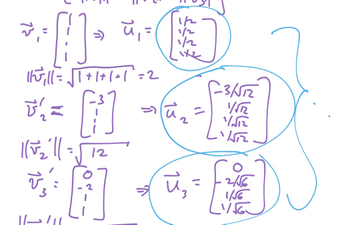 v⃗₁ = [1 1 1 1] ⇒ u⃗₁ = [1/2 1/2 1/2 1/2]
||v⃗₁|| = √1+1+1+1 = 2
v⃗₂' = [-3 1 1 1] ⇒ u⃗₂ = [-3/√12 1/√12 1/√12 1/√12]
||v⃗₂'|| = √12
v⃗₃' = [0 -2 1 1] ⇒ u⃗₃ = [0 -2/√6 1/√6 1/√6]